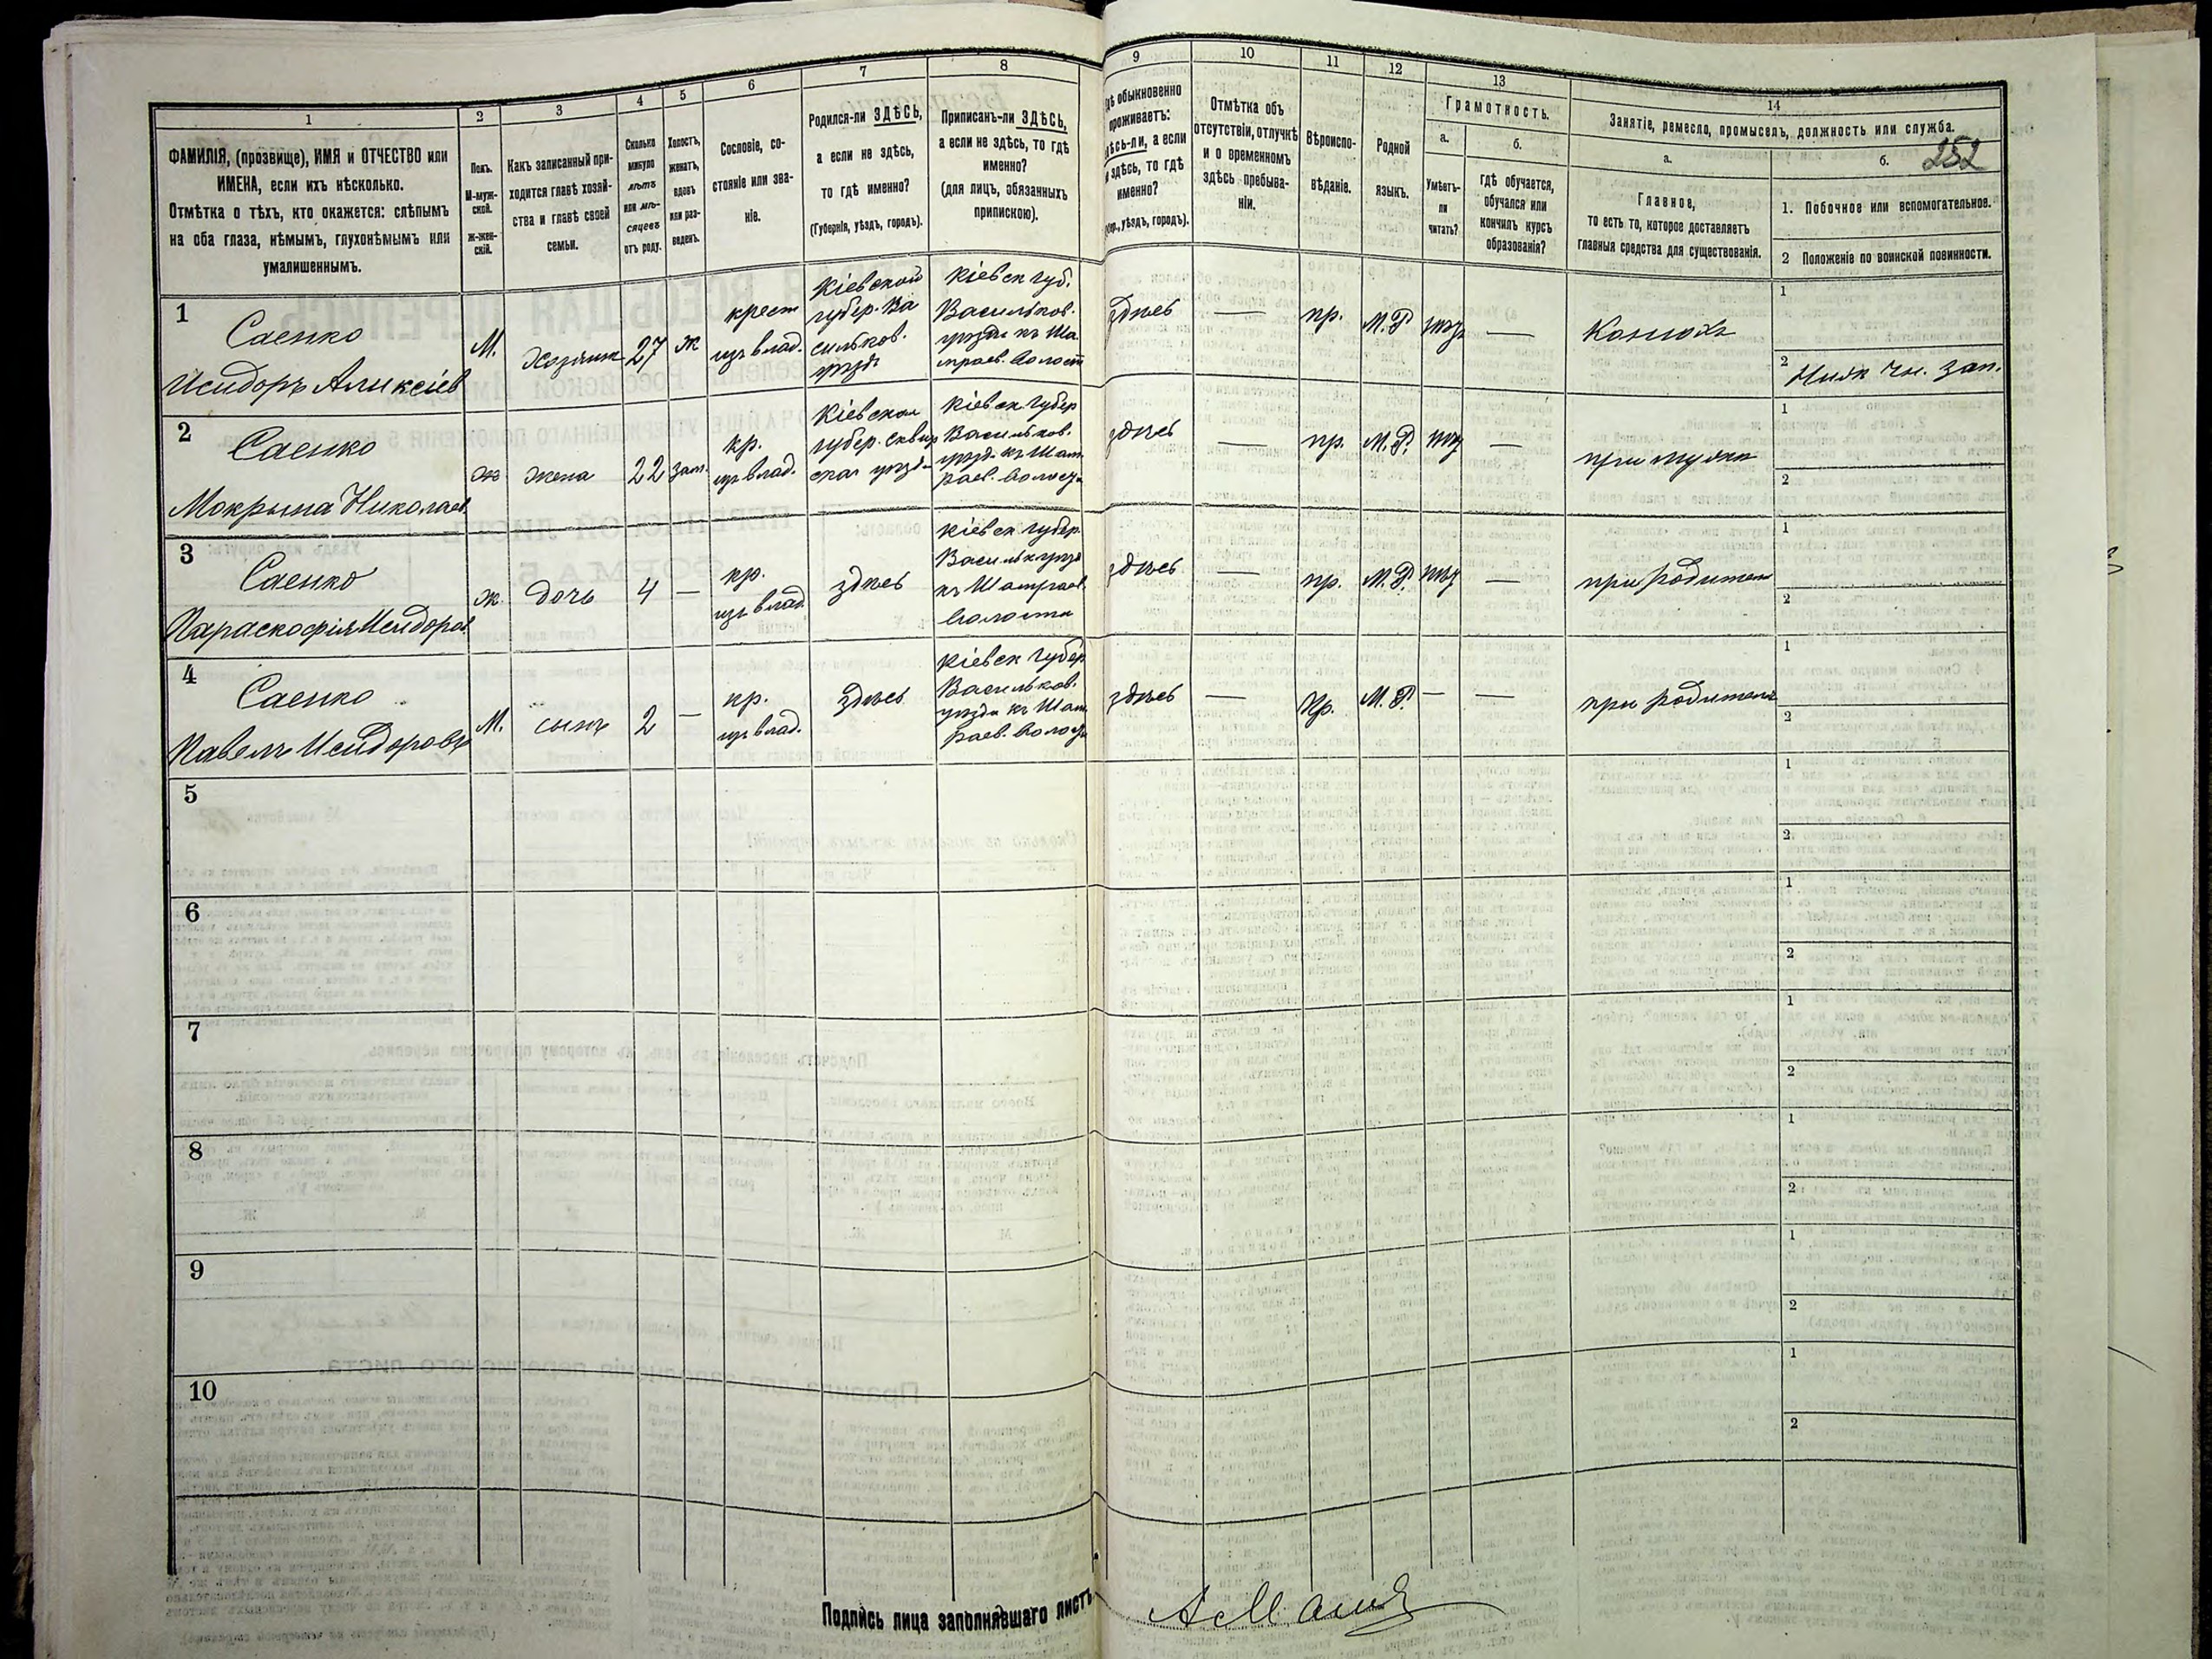 1
ФАМИЛІЯ, (прозвище), ИМЯ и ОТЧЕСТВО или
ИМЕНА, если ихъ нѣсколько.
Отмѣтка о тѣхъ, кто окажется: слѣпымъ
на оба глаза, нѣмымъ, глухонѣмымъ или
умалишеннымъ.
2
Полъ.
М-муж-
ской.
Ж-жен-
скій.
3
Какъ записанный при-
ходится главѣ хозяй-
ства и главѣ своей
семьи.
4
Сколько
минуло
лѣтъ
или мѣ-
сяцевъ
отъ роду.
5
Холостъ,
женатъ,
вдовъ
или раз-
веденъ.
6
Сословіе, со-
стояніе или зва-
ніе.
7
Родился-ли ЗДѢСЬ,
а если не здѣсь,
то гдѣ именно?
(Губернія, уѣздъ, городъ).
8
Приписанъ-ли ЗДѢСЬ,
а если не здѣсь, то гдѣ
именно?
(для лицъ, обязанныхъ
припискою).
9
обыкновенно
проживаетъ:
а если
здѣсь, то гдѣ
именно?
уѣздъ, городъ).
10
Отмѣтка объ
отсутствіи, отлучкѣ
и о временномъ
здѣсь пребыва-
ніи.
11
Вѣроиспо-
вѣданіе.
12
Родной
языкъ.
13
Грамотность.
а.
Умѣетъ-
ли
читать?
б.
гдѣ обучается,
обучался или
кончилъ курсъ
образованія?
14
Занятіе, ремесло, промыселъ, должность или служба.
252
а.
Главное,
то есть то, которое доставляетъ
главныя средства для существованія.
б.
1. Побочное или вспомогательное.
2 Положеніе по воинской повинности.
1
Саенко
Исидоръ Алексіев
М.
Хозяин
27
ж
крест
изъ влад.
Кіевской
губер. Ва
сильков.
уѣзд
Кіевск губ.
Васильков.
уѣзда къ Ша
мраев. волост
здѣсь
—
пр.
М.Р
—
1
2
2
Саенко
Мокрына Николаев.
ж
жена
22
зам.
кр.
изъ влад.
Кіевская
губер. Сквир
ская уѣзд
Кіевск Губер
Васильков.
уѣзд. къ Шам
раев. волост
здѣсь
—
пр.
М.Р.
—
при мужи
1
2
3
Саенко
Параскофія Исидоров.
ж.
дочь
4
—
кр.
изъ влад
здѣсь
Кіевск губер.
Васильк уѣзд
къ Шамраев.
волости
здѣсь
—
пр.
М.Р.
—
при родител
1
2
4
Саенко
Павелъ Исидоровъ
М.
сынъ
2
—
кр.
изъ влад.
здѣсь
Кіевск Губер
Васильков.
уѣзда къ Шам
раев. волост
здѣсь
—
Пр.
М.Р
—
—
при родител
1
2
5
1
2
6
1
2
7
1
2
8
1
2
9
1
2
10
1
2
Подпись лица заполнявшаго листъ